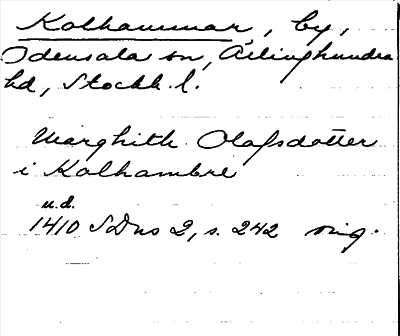 Kolhammar, by,
Odensala sn, Ärlinghundra
hd, Stockh. l.
Marghith Olafsdotter
i Kolhambre
u.d.
1410 SDns 2, s. 242 orig.